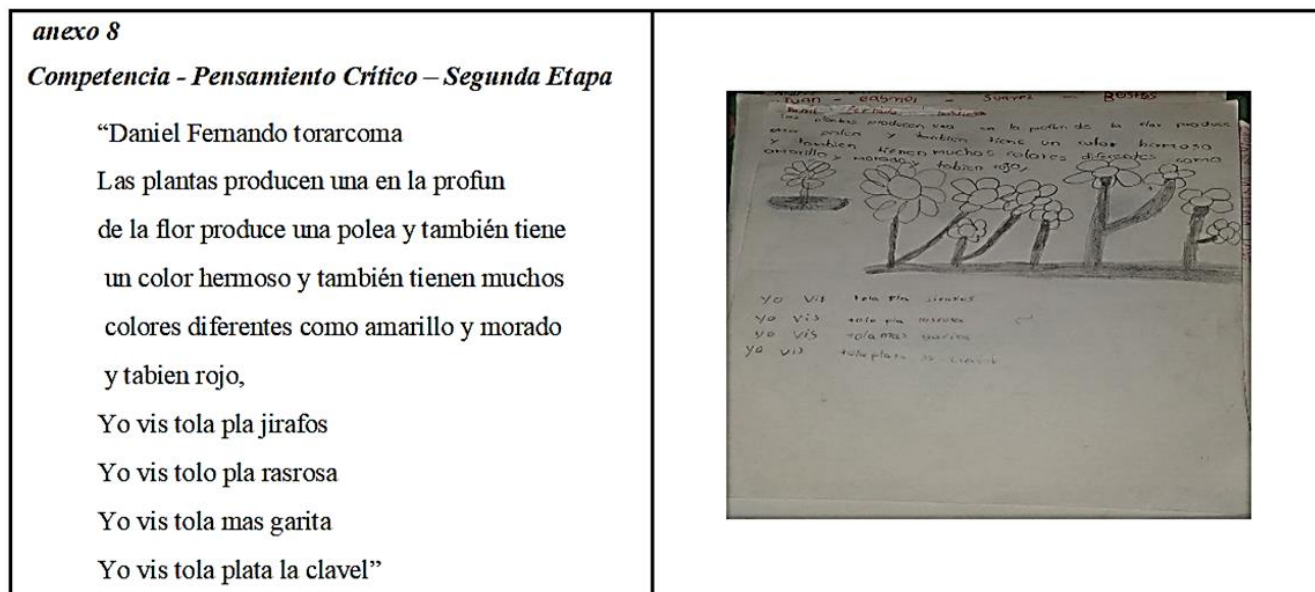 anexo 8
Competencia - Pensamiento Crítico – Segunda Etapa
“Daniel Fernando torarcoma
Las plantas producen una en la profun
de la flor produce una polea y también tiene
un color hermoso y también tienen muchos
colores diferentes como amarillo y morado
y tabien rojo,
Yo vis tola pla jirafos
Yo vis tolo pla rasrosa
Yo vis tola mas garita
Yo vis tola plata la clavel”
Suarez
las plantas producen una en la profun de la flor produce
polea y tambien tiene un color hermoso
y tambien tienen muchos colores diferentes como
amarillo y morado y tabien rojo,
yo vis tola pla
yo vis tolo pla
yo vis tola mas garita
yo vis tola plata